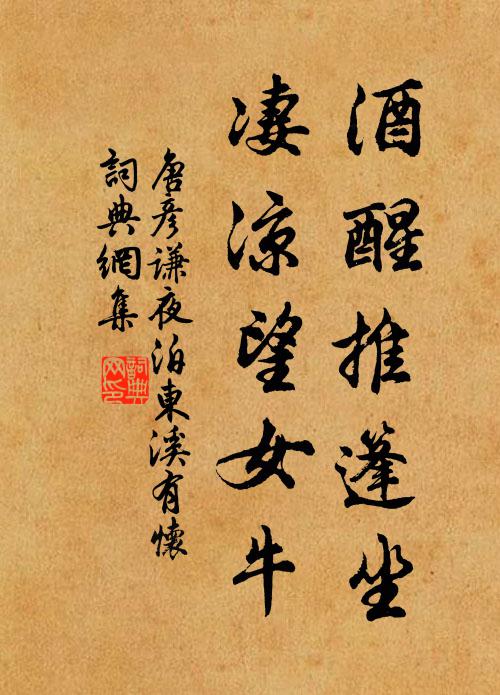 酒醒推蓬坐
凄涼望女牛
唐彦謙夜泊東溪有懷
詞典網集
詞典
网印